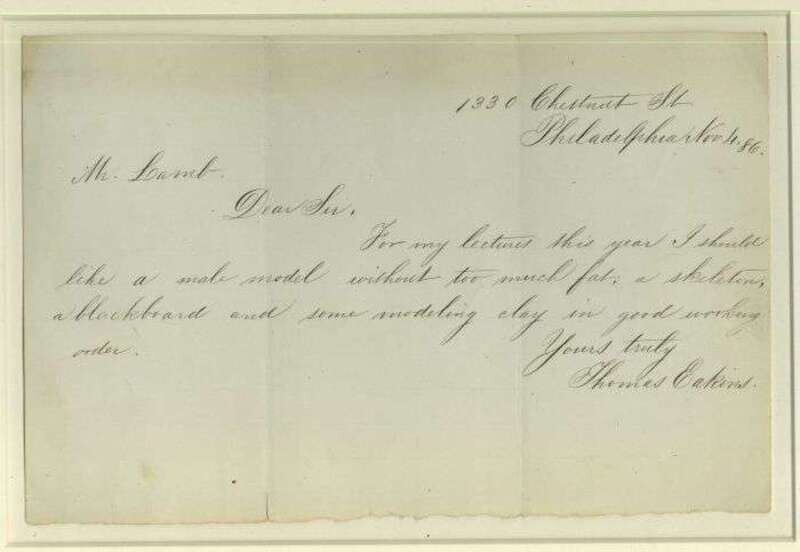 1330 Chestnut St
Philadelphia Nov 4. 86.
Mr. Lamb.
Dear Sir,
For my lectures this year I should
like a male model without too much fat, a skeleton,
a blackboard and some modeling clay in good working
order.
Yours truly
Thomas Eakins.